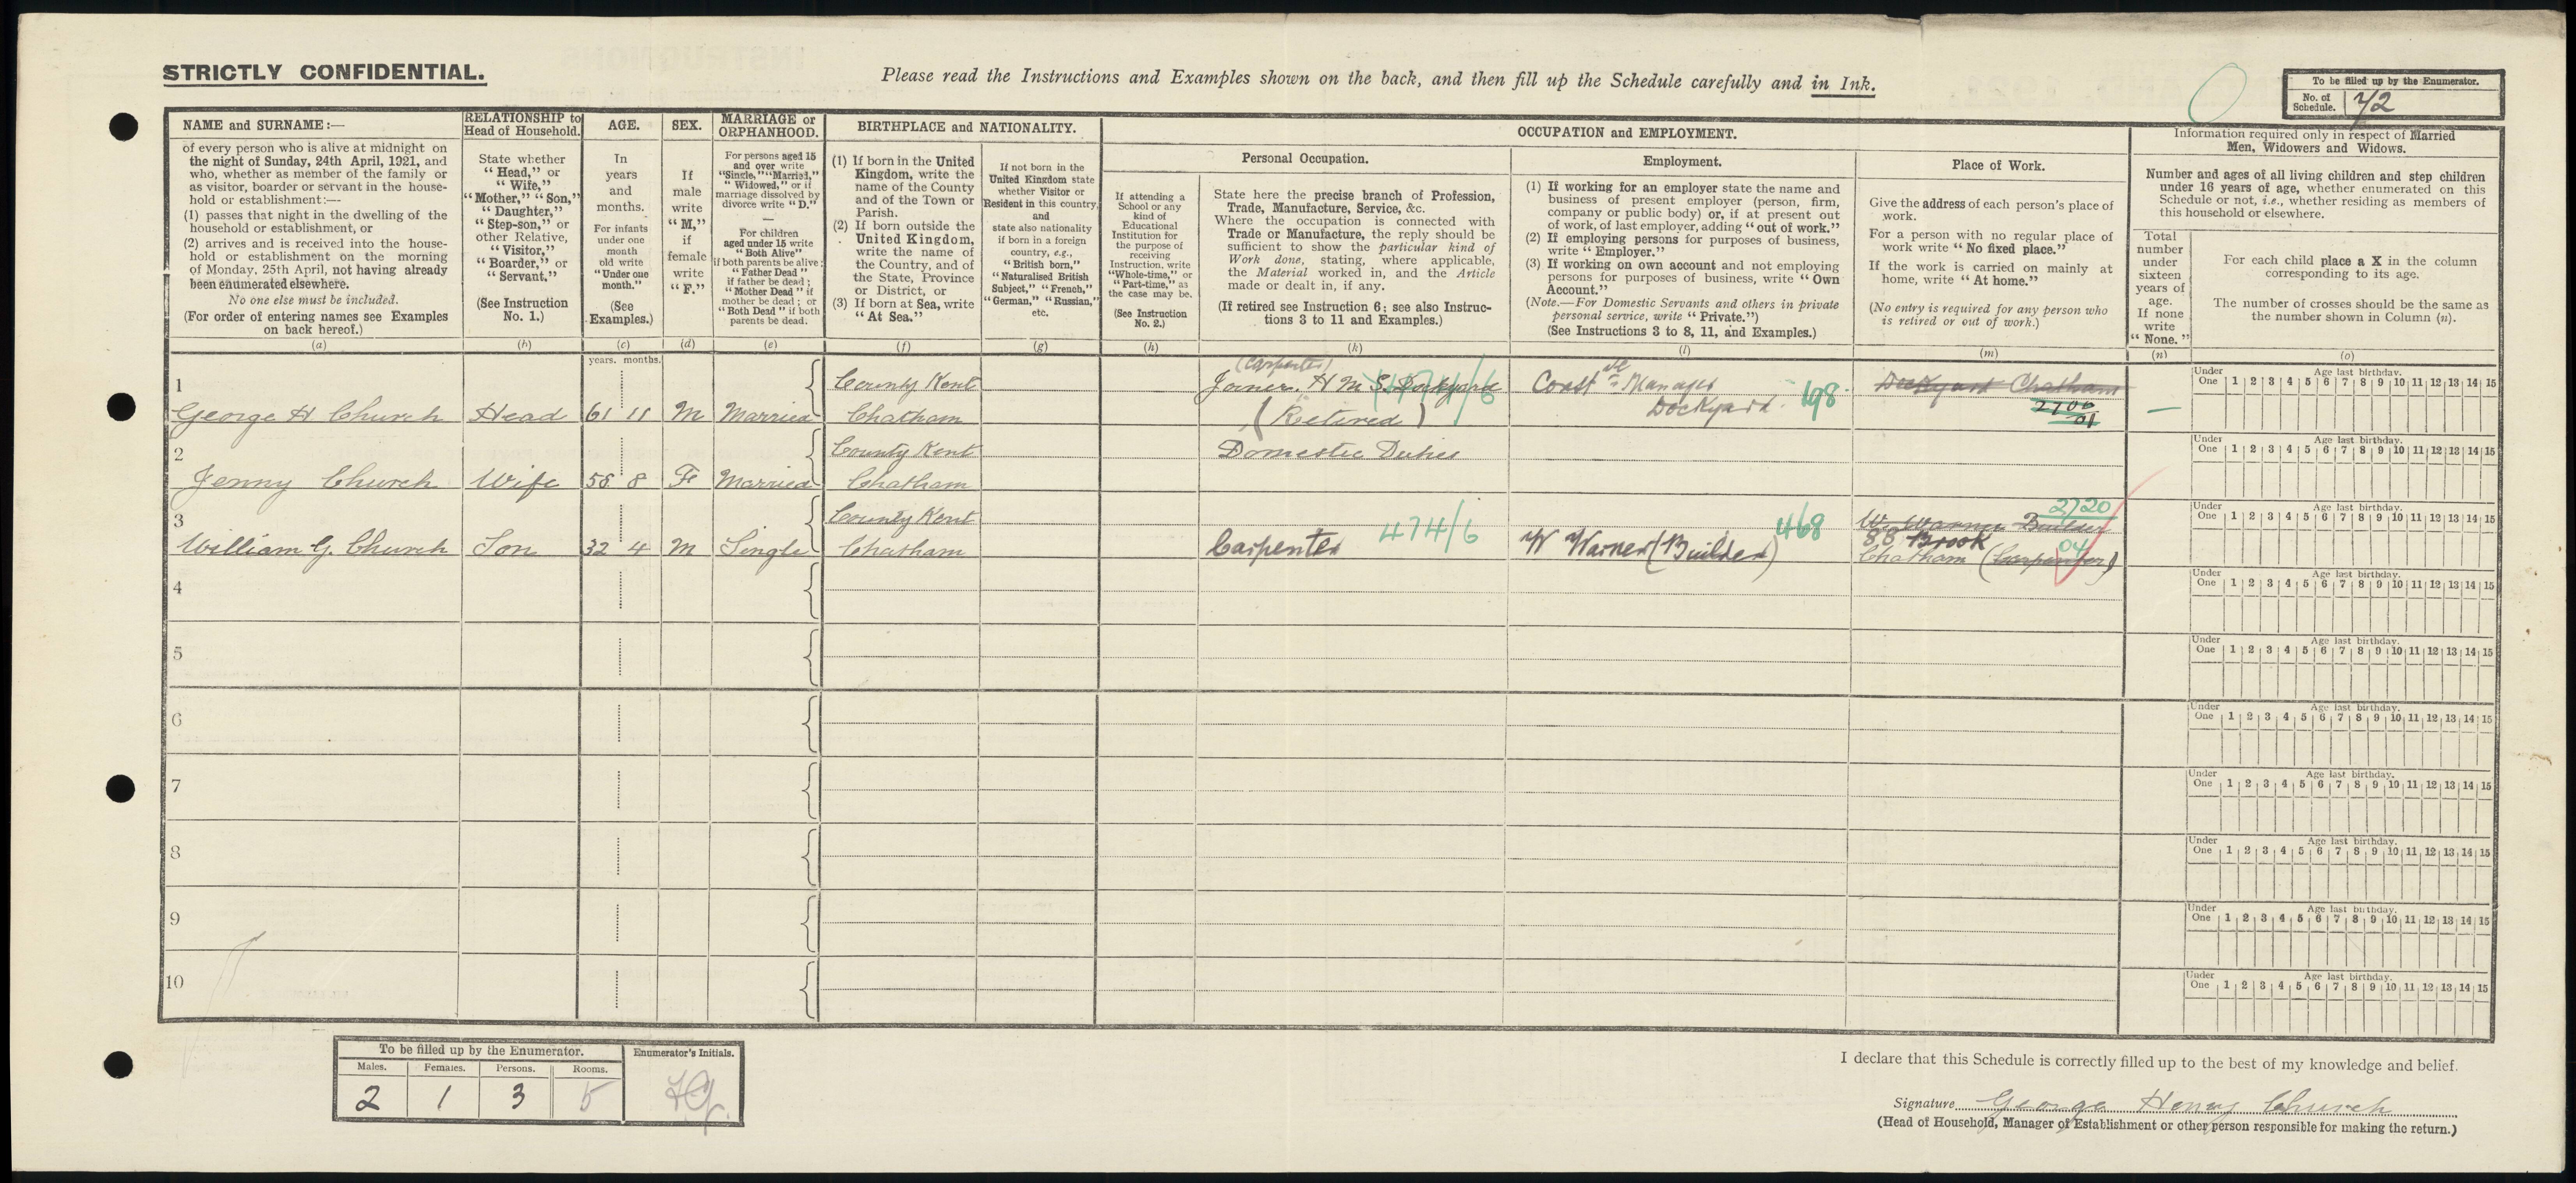 STRICTLY CONFIDENTIAL.
Please read the Instructions and Examples shown on the back, and then fill up the Schedule carefully and in Ink.
To be filled up by the Enumerator.
No. of Schedule. 72
NAME and SURNAME:—
of every person who is alive at midnight on
the night of Sunday, 24th April, 1921, and
who, whether as member of the family or
as visitor, boarder or servant in the house-
hold or establishment:—
(1) passes that night in the dwelling of the
household or establishment, or
(2) arrives and is received into the house-
hold or establishment on the morning
of Monday, 25th April, not having already
been enumerated elsewhere.
No one else must be included.
(For order of entering names see Examples
on back hereof.)
(a)
RELATIONSHIP to
Head of Household.
State whether
“Head,” or
“Wife,”
“Mother,” “Son,”
“Daughter,”
“Step-son,” or
other Relative,
“Visitor,”
“Boarder,” or
“Servant.”
(See Instruction
No. 1.)
(b)
AGE.
In
years
and
months.
For infants
under one
month
old write
“Under one
month.”
(See
Examples.)
(c)
SEX.
If
male
write
“M,”
if
female
write
“F.”
(d)
MARRIAGE or
ORPHANHOOD.
For persons aged 15
and over write
“Single,” “Married,”
“Widowed,” or if
marriage dissolved by
divorce write “D.”
—
For children
aged under 15 write
“Both Alive”
if both parents be alive;
“Father Dead”
if father be dead;
“Mother Dead” if
mother be dead; or
“Both Dead” if both
parents be dead.
(e)
BIRTHPLACE and NATIONALITY.
(1) If born in the United
Kingdom, write the
name of the County
and of the Town or
Parish.
(2) If born outside the
United Kingdom,
write the name of
the Country, and of
the State, Province
or District, or
(3) If born at Sea, write
“At Sea.”
(f)
If not born in the
United Kingdom state
whether Visitor or
Resident in this country,
and
state also nationality
if born in a foreign
country, e.g.,
“British born,”
“Naturalised British
Subject,” “French,”
“German,” “Russian,”
etc.
(g)
OCCUPATION and EMPLOYMENT.
Personal Occupation.
If attending a
School or any
kind of
Educational
Institution for
the purpose of
receiving
Instruction, write
“Whole-time,” or
“Part-time,” as
the case may be.
(See Instruction
No. 2.)
(h)
State here the precise branch of Profession,
Trade, Manufacture, Service, &c.
Where the occupation is connected with
Trade or Manufacture, the reply should be
sufficient to show the particular kind of
Work done, stating, where applicable,
the Material worked in, and the Article
made or dealt in, if any.
(If retired see Instruction 6; see also Instruc-
tions 3 to 11 and Examples.)
(k)
Employment.
(1) If working for an employer state the name and
business of present employer (person, firm,
company or public body) or, if at present out
of work, of last employer, adding “out of work.”
(2) If employing persons for purposes of business,
write “Employer.”
(3) If working on own account and not employing
persons for purposes of business, write “Own
Account.”
(Note.—For Domestic Servants and others in private
personal service, write “Private.”)
(See Instructions 3 to 8, 11, and Examples.)
(l)
Place of Work.
Give the address of each person's place of
work.
For a person with no regular place of
work write “No fixed place.”
If the work is carried on mainly at
home, write “At home.”
(No entry is required for any person who
is retired or out of work.)
(m)
Information required only in respect of Married
Men, Widowers and Widows.
Number and ages of all living children and step children
under 16 years of age, whether enumerated on this
Schedule or not, i.e., whether residing as members of
this household or elsewhere.
Total
number
under
sixteen
years of
age.
If none
write
“None.”
(n)
For each child place a X in the column
corresponding to its age.
The number of crosses should be the same as
the number shown in Column (n).
(o)
years. months.
1
George H Church Head 61 11 M Married
County Kent
Chatham
(Carpenter)
Joiner. H M S. Dockyard
474/6
(Retired)
Manager
Dockyard. 198
Dockyard Chatham
—
Under One 1 2 3 4 5 6 7 8 9 10 11 12 13 14 15
Age last birthday.
2
Jenny Church Wife 58 8 Fe Married
County Kent
Chatham
Domestic Duties
Under One 1 2 3 4 5 6 7 8 9 10 11 12 13 14 15
Age last birthday.
3
William G. Church Son 32 4 M Single
County Kent
Chatham
Carpenter 474/6
W Warner (Builder) 468
2720
W. Warner Builder
88 Brook 04
Chatham (Carpenter)
Under One 1 2 3 4 5 6 7 8 9 10 11 12 13 14 15
Age last birthday.
4
Under One 1 2 3 4 5 6 7 8 9 10 11 12 13 14 15
Age last birthday.
5
Under One 1 2 3 4 5 6 7 8 9 10 11 12 13 14 15
Age last birthday.
6
Under One 1 2 3 4 5 6 7 8 9 10 11 12 13 14 15
Age last birthday.
7
Under One 1 2 3 4 5 6 7 8 9 10 11 12 13 14 15
Age last birthday.
8
Under One 1 2 3 4 5 6 7 8 9 10 11 12 13 14 15
Age last birthday.
9
Under One 1 2 3 4 5 6 7 8 9 10 11 12 13 14 15
Age last birthday.
10
Under One 1 2 3 4 5 6 7 8 9 10 11 12 13 14 15
Age last birthday.
To be filled up by the Enumerator.
Enumerator's Initials.
Males. Females. Persons. Rooms.
2 1 3 5
I declare that this Schedule is correctly filled up to the best of my knowledge and belief.
Signature George Henry Church
(Head of Household, Manager of Establishment or other person responsible for making the return.)